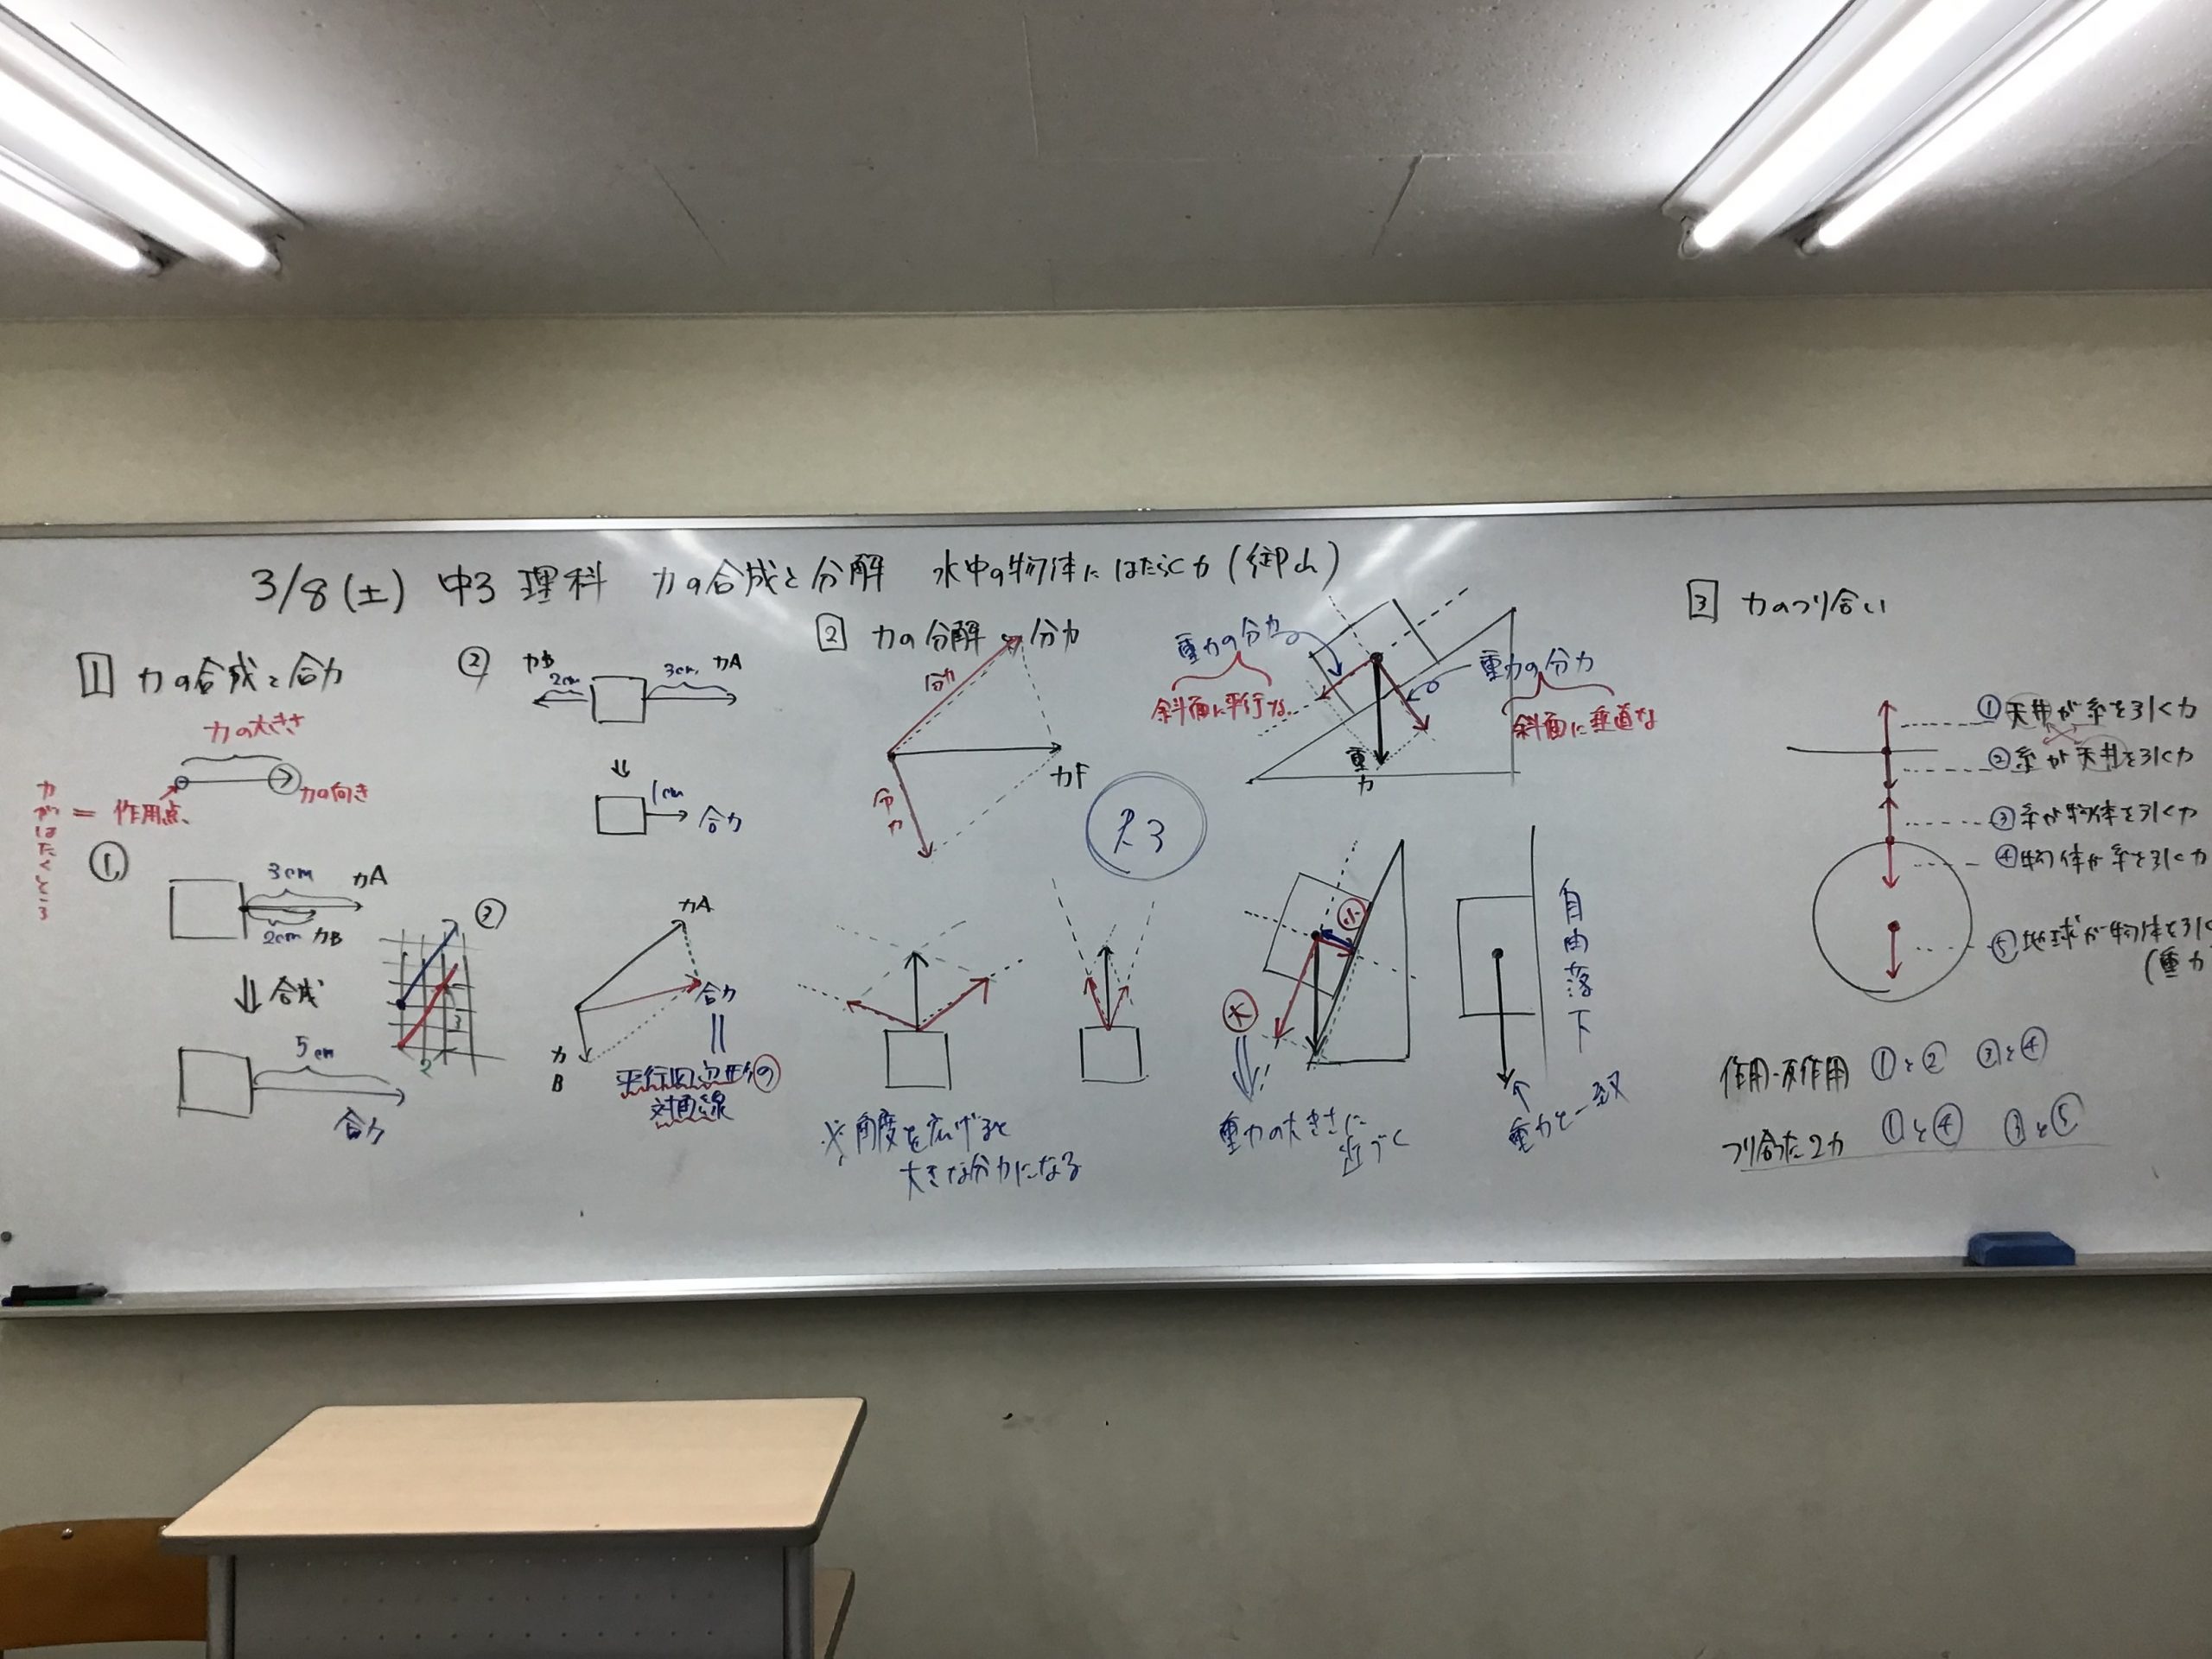 3/8(土) 中3 理科 力の合成と分解 水中の物体にはたらく力(御山)
1 力の合成と合力
力の大きさ
力の向き
力がはたらくところ
= 作用点
①
3cm 力A
2cm 力B
合成
5cm
合力
②
力B
2cm
3cm 力A
1cm
合力
③
3
2
力A
力B
合力
平行四辺形の
対角線
2 力の分解と分力
分力
分力
力F
※角度を広げると
大きな分力になる
重力の分力
斜面に平行な
重力の分力
斜面に垂直な
重力
小
大
重力の大きさに
近づく
自由落下
重力と一致
3 力のつり合い
①天井が糸を引く力
②糸が天井を引く力
③糸が物体を引く力
④物体が糸を引く力
⑤地球が物体を引く
(重力
作用・反作用 ①と② ③と④
つり合った2力 ①と④ ③と⑤